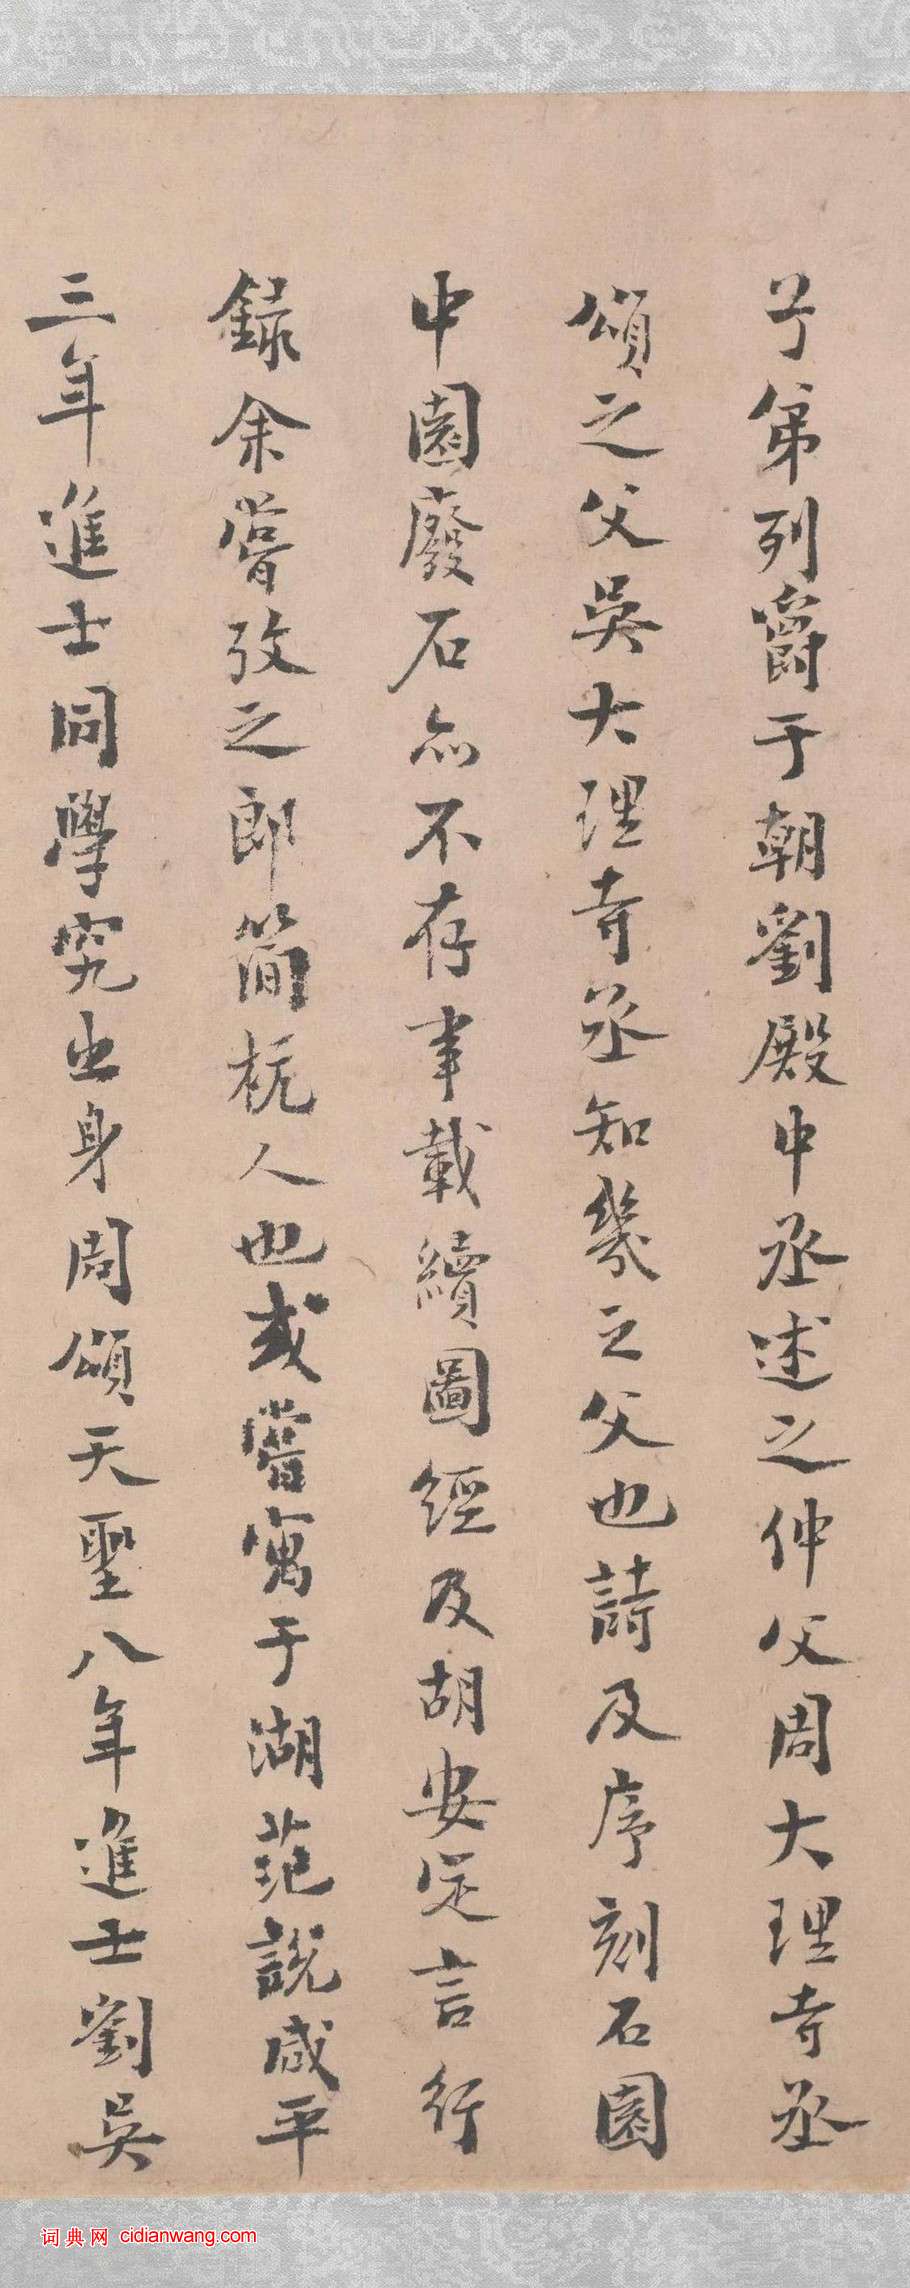 子弟列爵于朝劉殿中丞述之仲父周大理寺丞
頌之父吳大理寺丞知幾之父也詩及序刻石園
中園廢石亦不存事載續圖經及胡安定言行
錄余嘗攷之郎簡杭人也或嘗寓于湖范說咸平
三年進士同學究出身周頌天聖八年進士劉吳
词典网 cidianwang.com